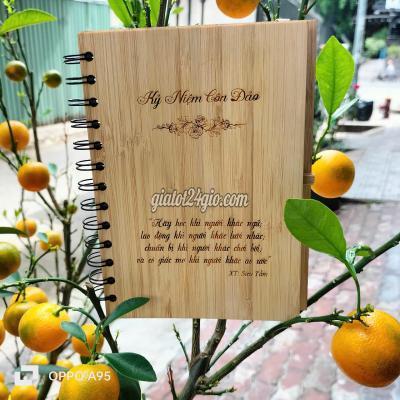 Kỷ Niệm Côn Đảo
gialot24gio.com
"Hãy học khi người khác ngủ;
lao động khi người khác lười nhác,
chuẩn bị khi người khác chơi bời,
và có giấc mơ khi người khác ao ước"
XT: Sưu Tầm
OPPO A95